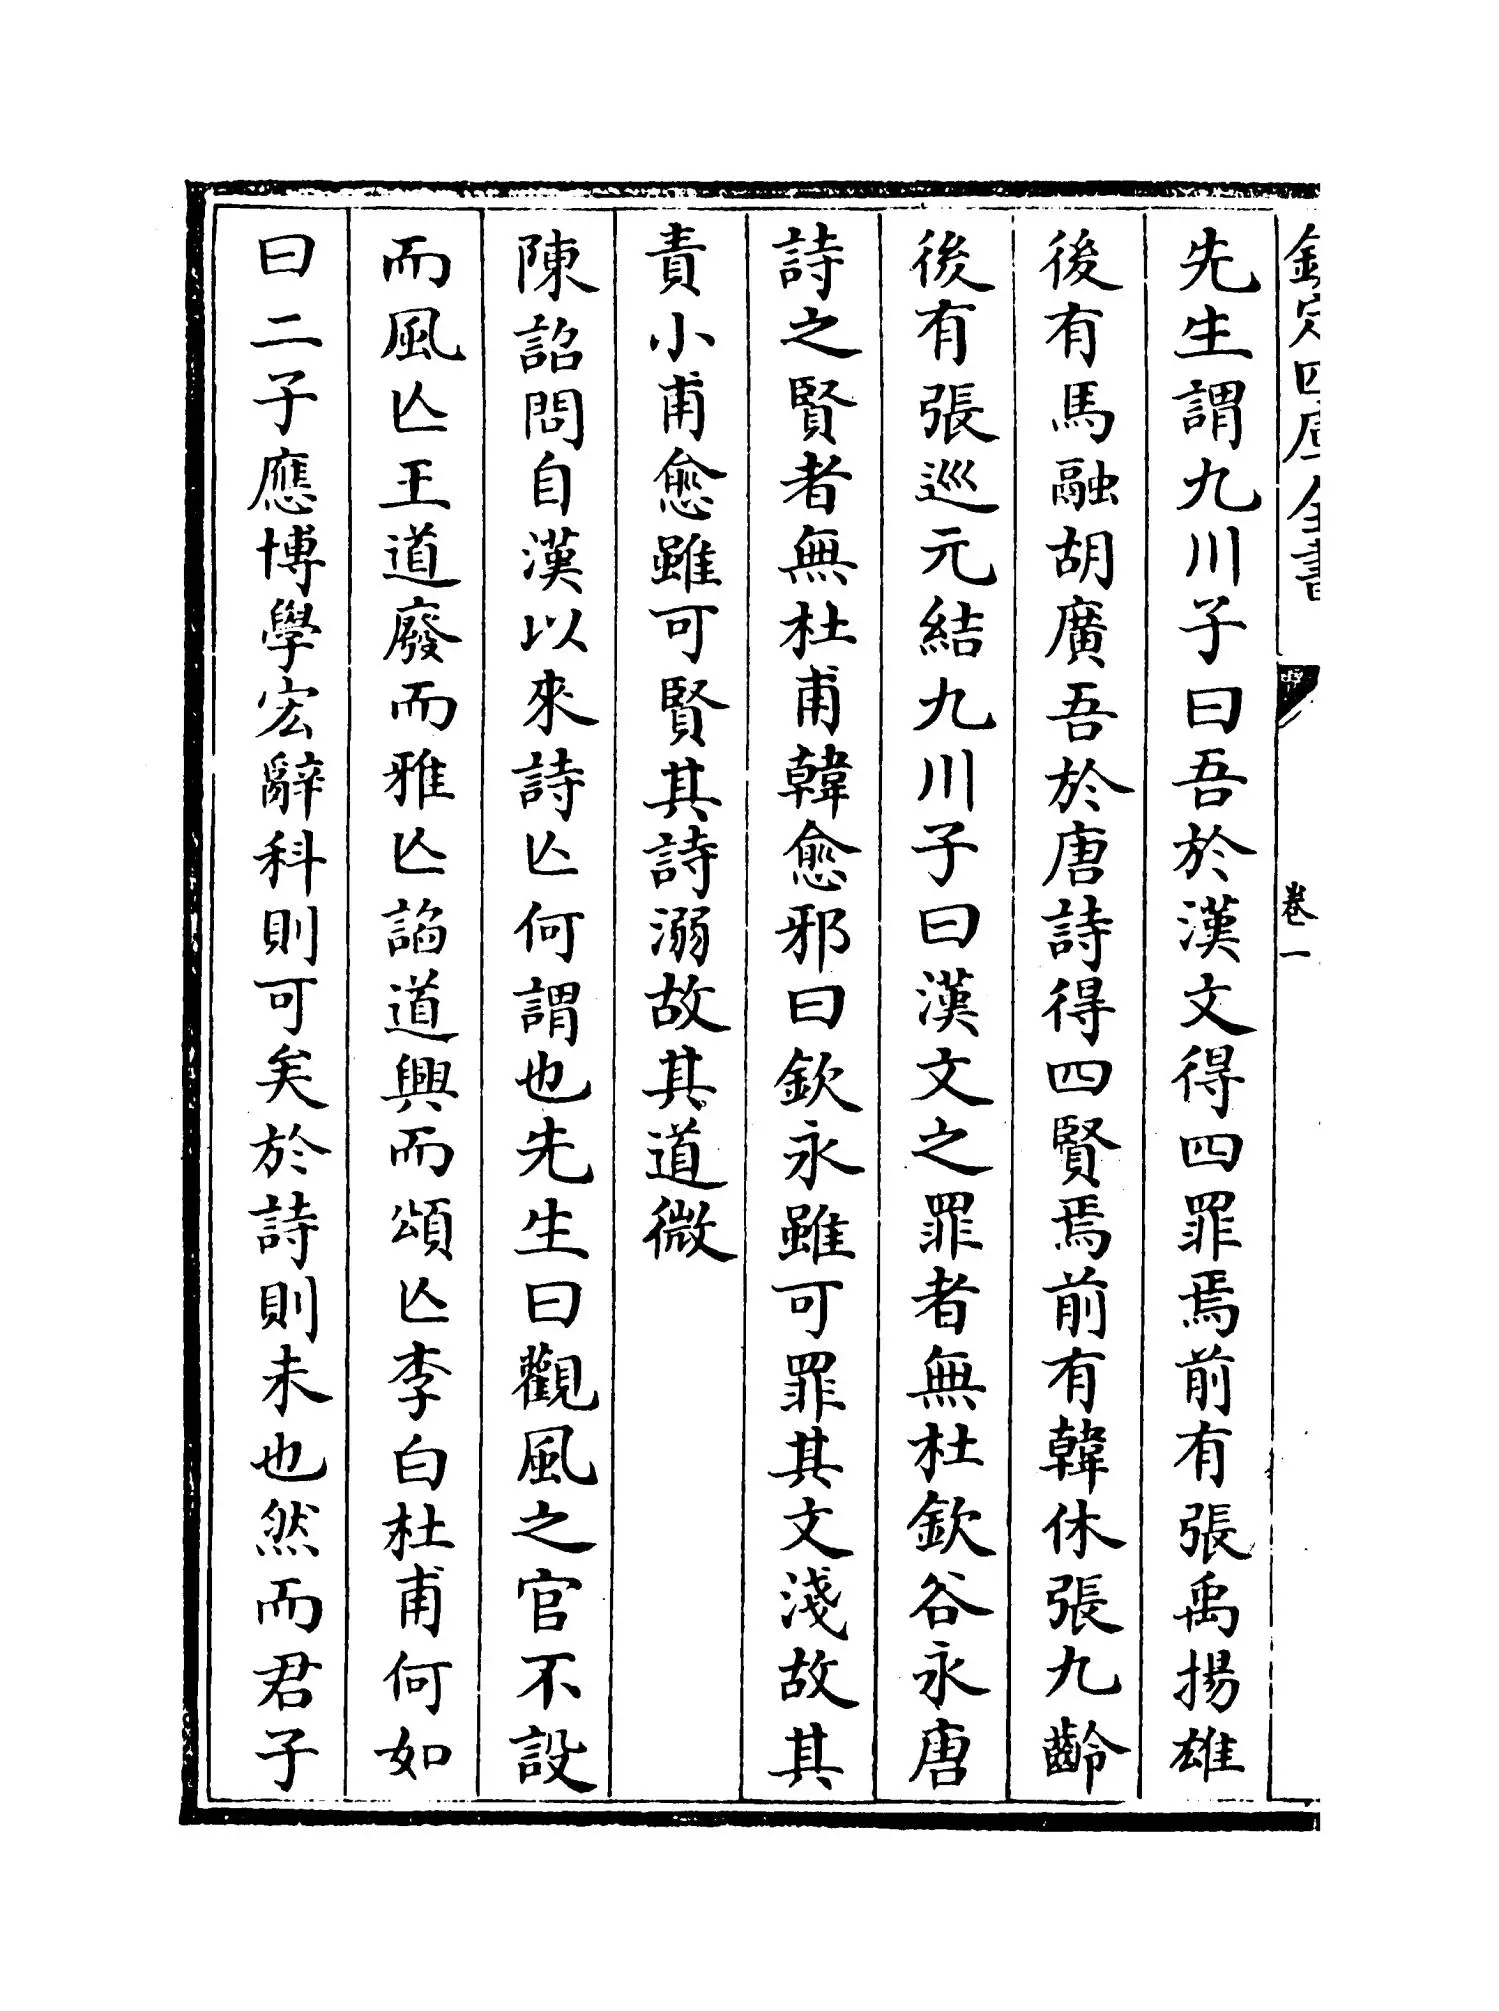 欽定四庫全書
卷一
先生謂九川子曰吾於漢文得四罪焉前有張禹揚雄
後有馬融胡廣吾於唐詩得四賢焉前有韓休張九齡
後有張巡元結九川子曰漢文之罪者無杜欽谷永唐
詩之賢者無杜甫韓愈邪曰欽永雖可罪其文淺故其
責小甫愈雖可賢其詩溺故其道微
陳詔問自漢以來詩亾何謂也先生曰觀風之官不設
而風亾王道廢而雅亾諂道興而頌亾李白杜甫何如
曰二子應博學宏辭科則可矣於詩則未也然而君子